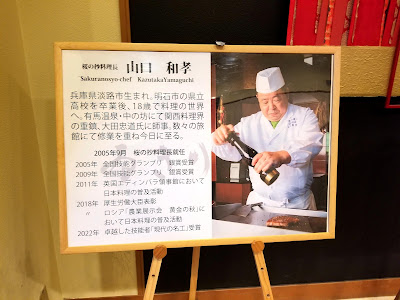 桜の抄料理長 山口 和孝
Sakuranosyo-chef KazutakaYamaguchi
兵庫県淡路市生まれ。明石市の県立
高校を卒業後、18歳で料理の世界
へ。有馬温泉・中の坊にて関西料理界
の重鎮、大田忠道氏に師事。数々の旅
館にて修業を重ね今日に至る。
2005年9月 桜の抄料理長就任
2005年 全国技能グランプリ 銀賞受賞
2009年 全国技能グランプリ 銀賞受賞
2011年 英国エディンバラ領事館において
日本料理の普及活動
2018年 厚生労働大臣表彰
〃 ロシア「農業展示会 黄金の秋」に
おいて日本料理の普及活動
2022年 卓越した技能者「現代の名工」受賞